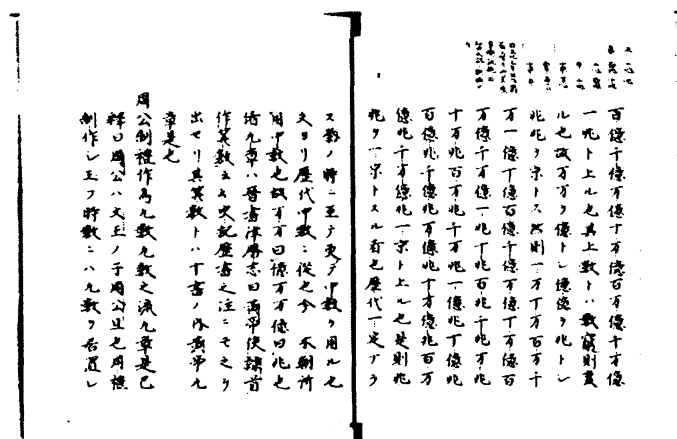 百億千億万億十万億百万億千万億
一兆ト上ル也其上数トハ数窮則変
ル也故万万ヲ億トシ億億ヲ兆トシ
兆兆ヲ京トス然則一万十万百万千
万一億十億百億千億万億十万億百
万億千万億一兆十兆百兆千兆万兆
十万兆百万兆千万兆一億兆十億兆
百億兆千億兆万億兆十万億兆百万
億兆千万億兆一京ト上ル也是則兆
兆ヲ一京トスル者也歴代一定ナラ
ス勢ノ時ニ至テ変テ中数ヲ用ル也
文ヨリ歴代中数ニ従也今 本朝所
用中数也故万万曰億万万億曰兆也
九章ハ晋書律暦志曰黄帝使隷首
作算数云云史記暦書之注ニモ之ヲ
出セリ其算数トハ十書ノ内黄帝九
章是也
周公制禮作為九数九数之流九章是已
釋曰周公ハ文王ノ子周公旦也周禮
制作シ玉フ時数ニハ九数ヲ置シ